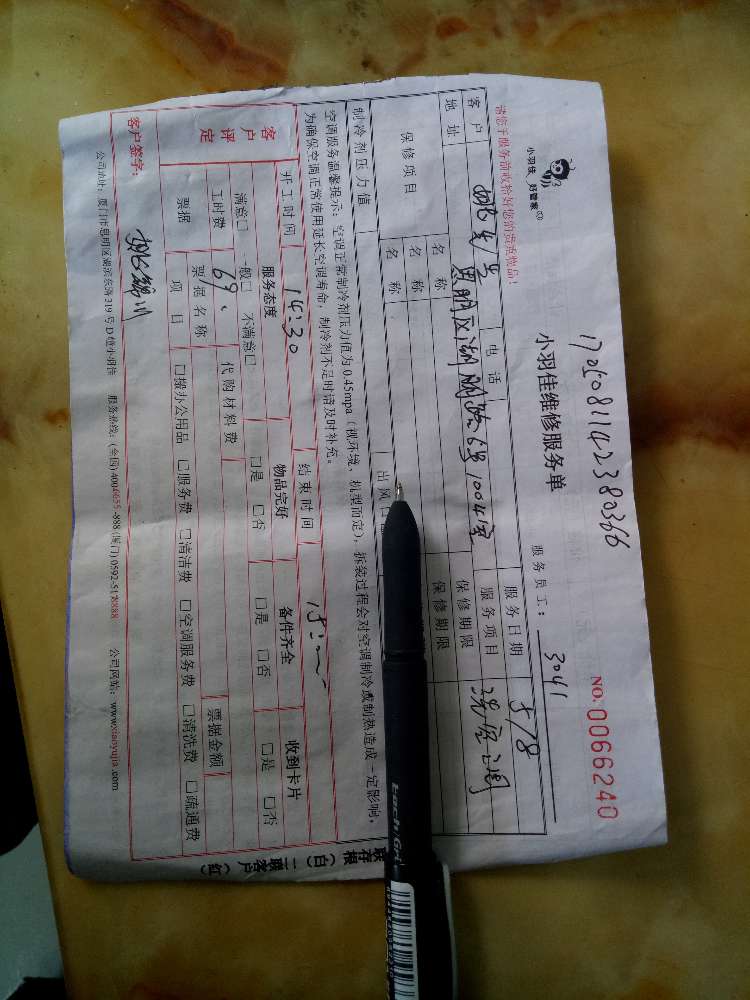 17050811142380366
小羽佳 好管家
小羽佳维修服务单
NO: 0066240
请您于服务前收拾好您的贵重物品!
服务员工: 3041
客户 电话 服务日期 5/8
地址 思明区湖明路6号1004室 服务项目 洗空调
保修项目 名称 保修期限
名称 保修期限
制冷剂压力值 出风口
空调服务温馨提示: 空调正常制冷剂压力值为0.45mpa (视环境、机型而定), 拆装过程会对空调制冷或制热造成一定影响,
为确保空调正常使用延长空调寿命, 制冷剂不足时请及时补充。
开工时间 14:30 结束时间
客户评定 服务态度 物品完好 备件齐全 收到卡片
满意□ 一般□ 不满意□ □是 □否 □是 □否 □是 □否
工时费 69. 代购材料费
票据 票据名称 票据金额
项目 □操办公用品 □服务费 □清洁费 □空调服务费 □清洗费 □疏通费
客户签字:
公司地址: 厦门市思明区湖滨东路319号D幢小羽佳 服务热线: (全国) (厦门) 公司网站: www.xiaoyujia.com
联存根(白) 二联客户(红)